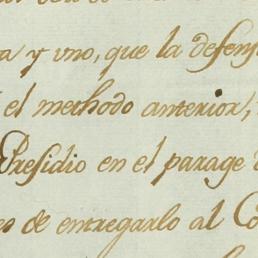 a y uno, que la defens
el methodo anterior,
Presidio en el parage
es de entregarlo al Co